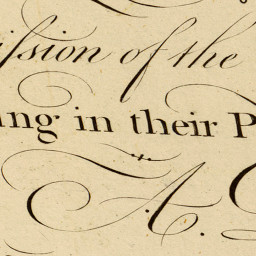 ſsion of the
ng in their P
A.